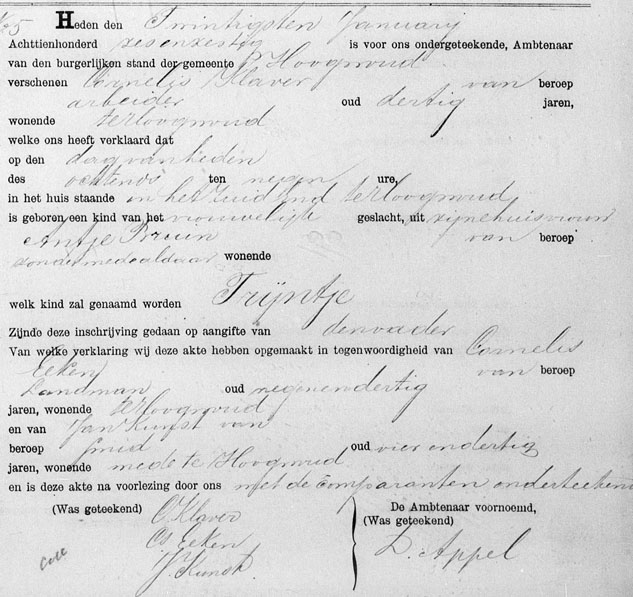 No 5 Heden den Twintigsten January
Achttienhonderd zesenzestig is voor ons ondergeteekende, Ambtenaar
van den burgerlijken stand der gemeente Hoogwoud
verschenen Cornelis Klaver van beroep
arbeider oud dertig jaren,
wonende te Hoogwoud
welke ons heeft verklaard dat
op den dag van heden
des ochtends ten negen ure,
in het huis staande in het Zuid End te Hoogwoud
is geboren een kind van het vrouwelijke geslacht, uit zijne huisvrouw
Antje Bruin van beroep
zonder mede aldaar wonende
welk kind zal genaamd worden Trijntje
Zijnde deze inschrijving gedaan op aangifte van den vader
Van welke verklaring wij deze akte hebben opgemaakt in tegenwoordigheid van Cornelis
Eeken van beroep
Landman oud negenendertig
jaren, wonende te Hoogwoud
en van Jan Kunst van
beroep smid oud vier en dertig
jaren, wonende mede te Hoogwoud
en is deze akte na voorlezing door ons met de comparanten onderteekend
(Was geteekend) C Klaver
De Ambtenaar voornoemd,
(Was geteekend)
Cs Eeken
J. Kunst
D. Appel
Coll